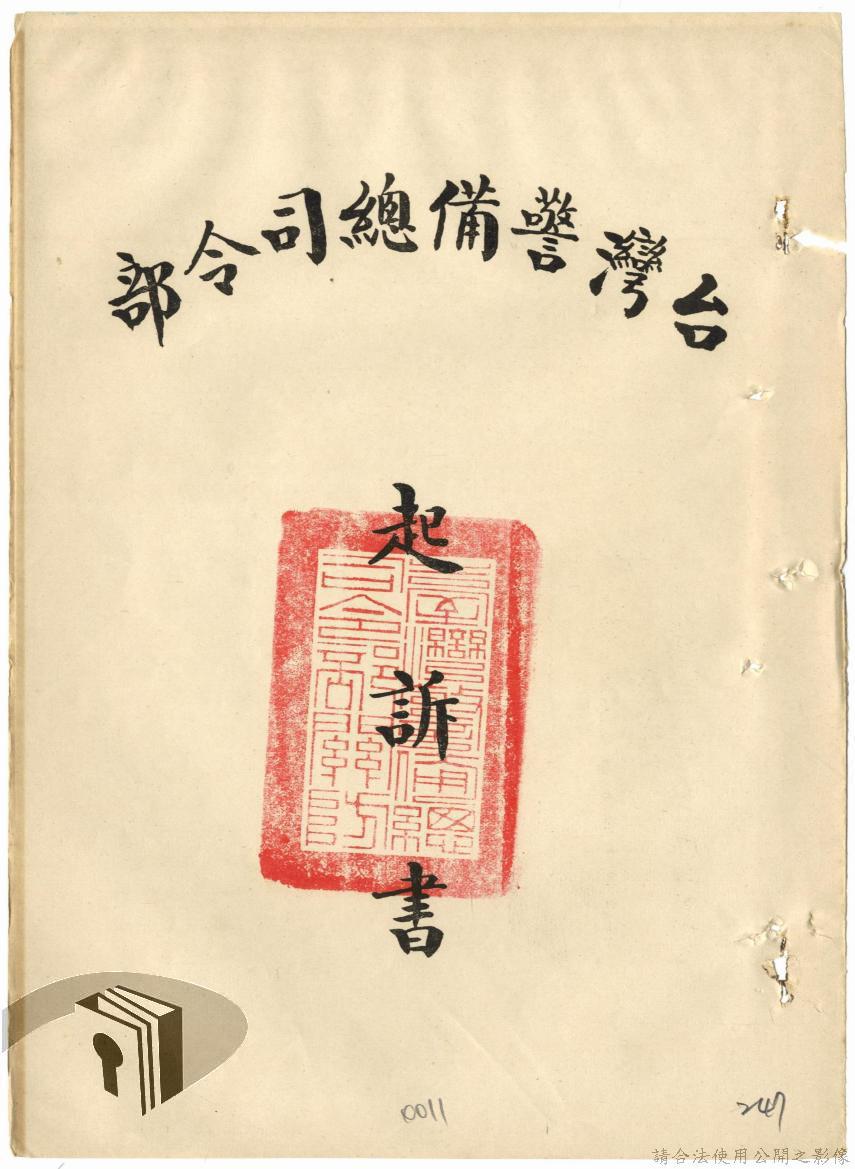 台灣警備總司令部
起訴書
0011
247
請合法使用公開之影像